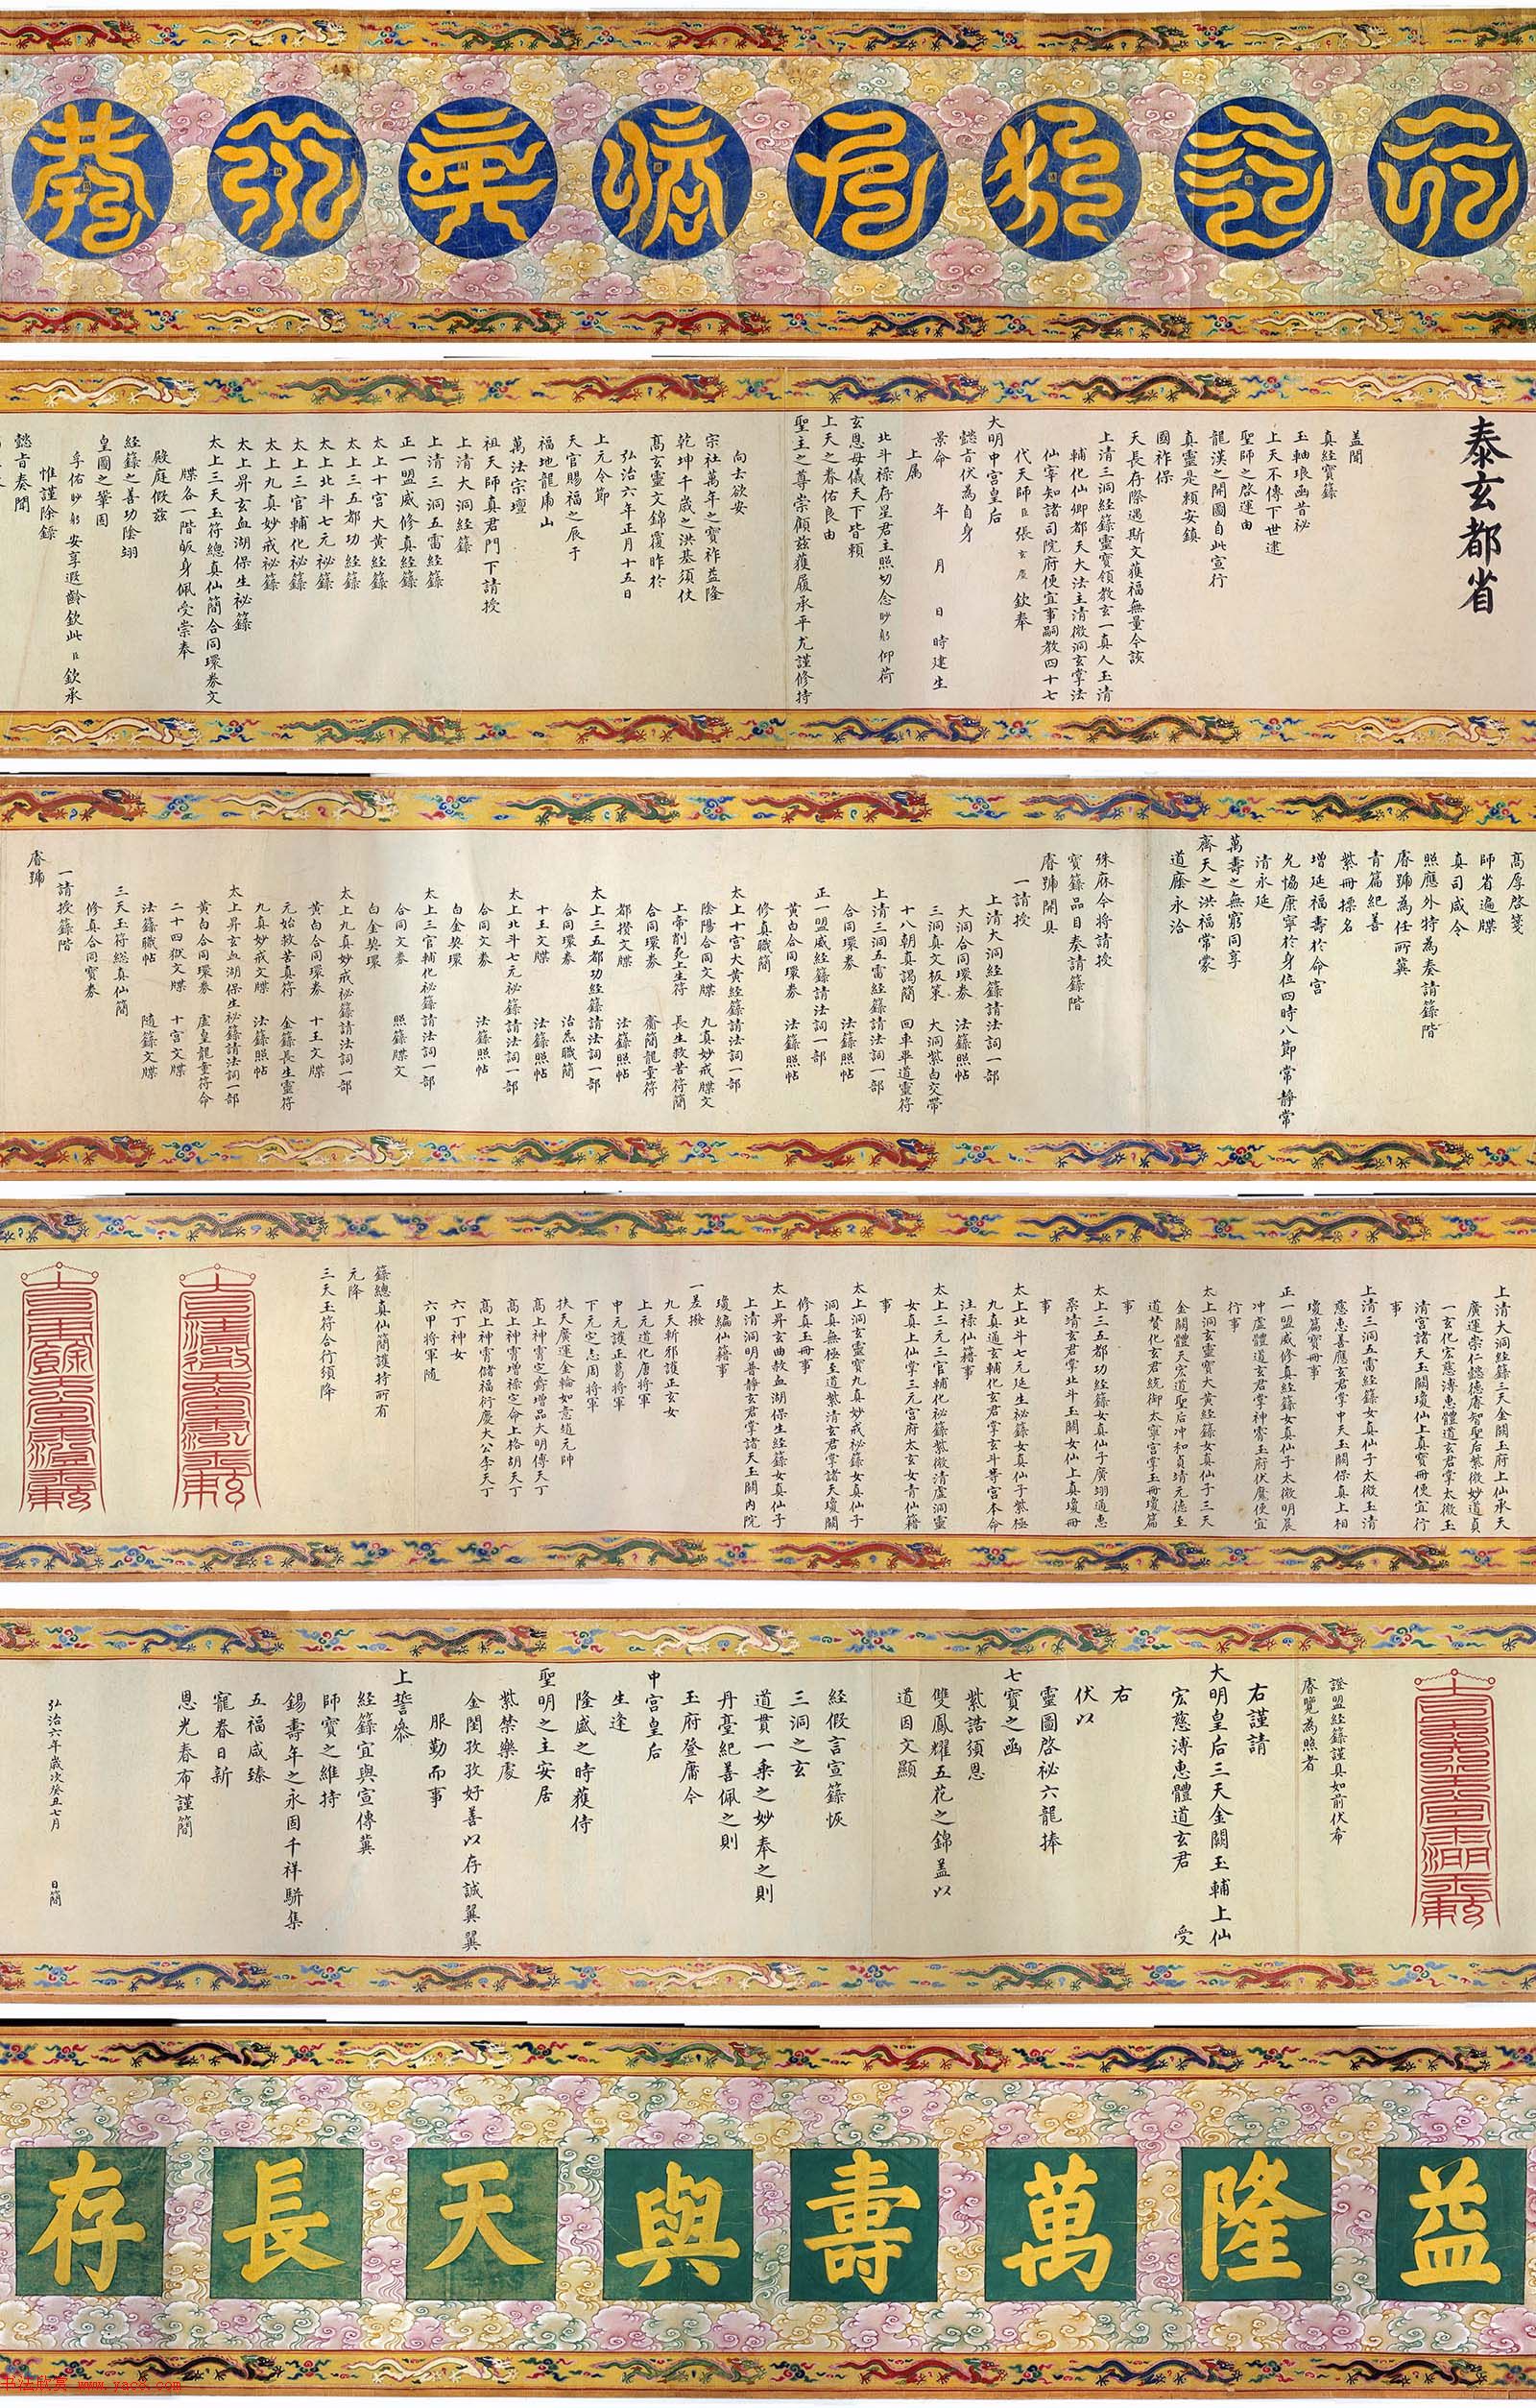 泰玄都省
蓋聞
真經寶籙
玉軸琅函昔祕
上天不傳下世逮
聖師之啓運由
龍漢之開圖自此宣行
真靈是賴安鎮
國祚保
天長存際遇斯文獲福無量今該
上清三洞經籙靈寶領教玄一真人玉清
輔化仙卿都天大法主清微洞玄掌法
仙宰知諸司院府便宜事嗣教四十七
代天師臣張玄慶欽奉
大明中宮皇后
懿旨伏為自身
景命 年 月 日 時建生
上属
北斗祿存星君主照切念眇躬仰荷
玄恩母儀天下皆賴
上天之眷佑良由
聖主之尊崇顧茲獲履承平尤謹修持
向去欲安
宗社萬年之寶祚益隆
乾坤千歲之洪基須仗
高玄靈文錦覆昨於
弘治六年正月十五日
上元令節
天官賜福之辰于
福地龍虎山
萬法宗壇
祖天師真君門下請授
上清大洞經籙
上清三洞五雷經籙
正一盟威修真經籙
太上十宮大黃經籙
太上三五都功經籙
太上北斗七元祕籙
太上三官輔化祕籙
太上九真妙戒祕籙
太上昇玄血湖保生祕籙
太上三天玉符總真仙簡合同環券文
牒各一階皈身佩受崇奉
殿庭假茲
經籙之善功陰翊
皇圖之鞏固
孚佑眇躬安享遐齡欽此臣欽承
懿旨奏聞
惟謹除錄
高厚啓箋
師省遍牒
真司咸令
照應外特為奏請籙階
睿號為任所冀
青篇紀善
紫冊標名
增延福壽於命宮
允協康寧於身位四時八節常靜常
清永延
萬壽之無窮同享
齊天之洪福常蒙
道廕永洽
殊庥今將請授
寶籙品目奏請籙階
睿號開具
一請授
上清大洞經籙請法詞一部
大洞合同環券 法籙照帖
三洞真文板策 大洞紫白交帶
十八朝真謁簡 回車畢道靈符
上清三洞五雷經籙請法詞一部
合同環券 法籙照帖
正一盟威經籙請法詞一部
黃白合同環券 法籙照帖
修真職簡
太上十宮大黃經籙請法詞一部
陰陽合同文牒 九真妙戒牒文
上帝削死上生符 長生救苦符簡
合同環券 齎簡龍童符
都攢文牒 法籙照帖
太上三五都功經籙請法詞一部
合同環券 治炁職簡
十王文牒 法籙照帖
太上北斗七元祕籙請法詞一部
合同文券 法籙照帖
白金契環
太上三官輔化祕籙請法詞一部
合同文券 照籙牒文
白金契環
太上九真妙戒祕籙請法詞一部
黃白合同環券 十王文牒
元始救苦真符 金籙長生靈符
九真妙戒文牒 法籙照帖
太上昇玄血湖保生祕籙請法詞一部
黃白合同環券 虛皇龍童符命
二十四獄文牒 十宮文牒
法籙職帖 隨籙文牒
三天玉符総真仙簡
修真合同寶券
一請授籙階
睿號
上清大洞經籙三天金闕玉府上仙承天
廣運崇仁懿德睿智聖后紫微妙道貞
一玄化宏慈溥惠體道玄君掌太微玉
清宮諸天玉闕瓊仙上真寶冊便宜行
事
上清三洞五雷經籙女真仙子太微玉清
慈惠善應玄君掌中天玉闕保真上相
瓊篇寶冊事
正一盟威修真經籙女真仙子太微明晨
冲虛體道玄君掌神霄玉府伏魔便宜
行事
太上洞玄靈寶大黃經籙女真仙子三天
金闕體天宏道聖后冲和貞靖元德至
道贊化玄君統御太寧宮掌玉冊瓊篇
事
太上三五都功經籙女真仙子廣翊通惠
柔靖玄君掌北斗玉闕女仙上真瓊冊
事
太上北斗七元延生祕籙女真仙子紫極
九真通玄輔化玄君掌玄斗等宮本命
注祿仙籍事
太上三元三官輔化祕籙紫微清虛洞靈
女真上仙掌三元宮府太玄女青仙籍
事
太上洞玄靈寶九真妙戒祕籙女真仙子
洞真無極至道紫清玄君掌諸天瓊闕
修真玉冊事
太上昇玄曲赦血湖保生經籙女真仙子
上清洞明普靜玄君掌諸天玉闕內院
瓊編仙籍事
一差撥
九天斬邪護正玄女
上元道化唐將軍
中元護正葛將軍
下元定志周將軍
扶天廣運金輪如意趙元帥
高上神霄定齊增品大明傅天丁
高上神霄增祿定命上格胡天丁
高上神霄儲福衍慶大公李天丁
六丁神女
六甲將軍隨
籙總真仙簡護持所有
元降
三天玉符合行須降
證盟經籙謹具如前伏希
睿覽為照者
右謹請
大明皇后三天金闕玉輔上仙
宏慈溥惠體道玄君 受
右
伏以
靈圖啓祕六龍捧
七寶之函
紫誥須恩
雙鳳耀五花之錦蓋以
道因文顯
經假言宣籙恢
三洞之玄
道貫一乘之妙奉之則
丹臺紀善佩之則
玉府登庸今
中宮皇后
生逢
隆盛之時獲侍
聖明之主安居
紫禁樂處
金閨孜孜好善以存誠翼翼
服勤而事
上誓叅
經籙宜與宣傳冀
師寶之維持
錫壽年之永固千祥駢集
五福咸臻
寵眷日新
恩光春布謹簡
弘治六年歲次癸丑七月 日簡
益隆萬壽與天長存
书法欣赏 www.yac8.com